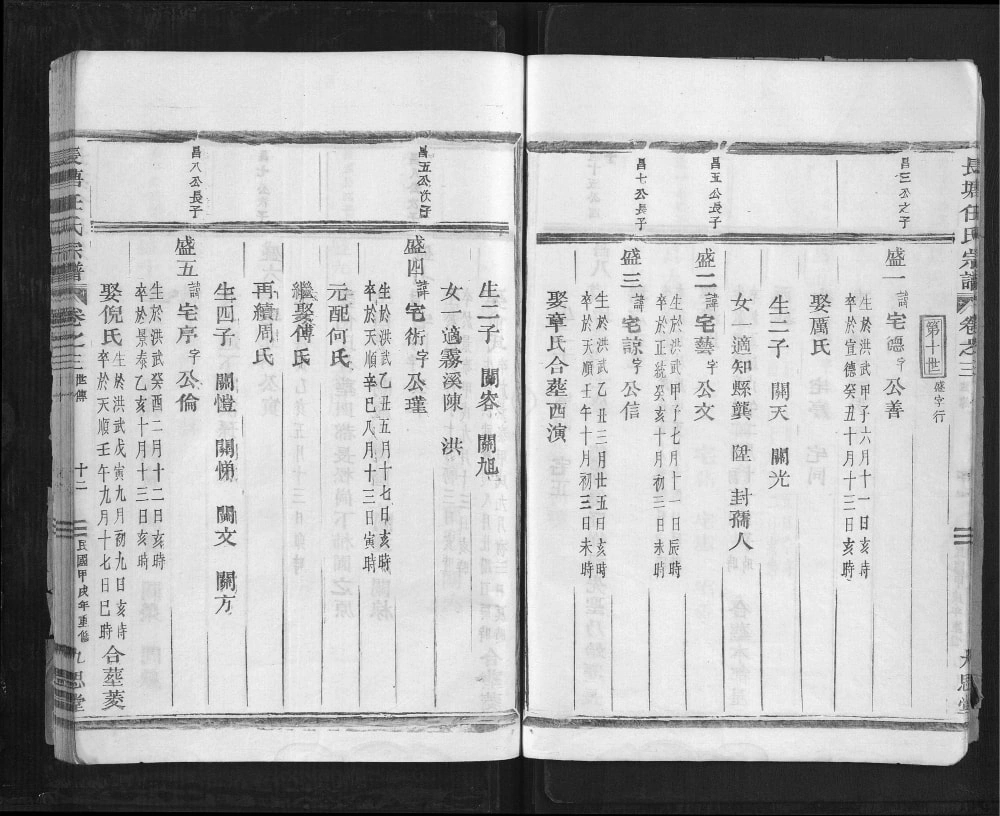 長塘任氏宗譜 卷之三 九思堂
第十世 盛字行
昌三公之子
盛一 諱宅德 字公善
生於洪武甲子六月十一日亥時
卒於宣德癸丑十月十三日亥時
娶厲氏
生二子 關天 關光
女一適知縣龔 陞 封孺人
昌五公長子
盛二 諱宅藝 字公文
生於洪武甲子七月十二日辰時
卒於正統癸亥十月初三日未時
昌七公長子
盛三 諱宅諒 字公信
生於洪武乙丑三月廿五日亥時
卒於天順壬午十月初三日未時
娶章氏合塟西演
生二子 關容 關旭
女一適霧溪陳 洪
昌五公次子
盛四 諱宅術 字公瑾
生於洪武乙丑五月十七日亥時
卒於天順辛巳八月十三日寅時
元配何氏
繼娶傅氏
再續周氏
生四子 關愷 關悌 關文 關方
昌八公長子
盛五 諱宅序 字公倫
生於洪武癸酉二月十二日亥時
卒於景泰乙亥十月十三日亥時
娶倪氏
生於洪武戊寅九月初九日亥時
卒於天順壬午九月十七日巳時
合塟菱
長塘任氏宗譜 卷之三 世傳 十二 民國甲戌年重修 九思堂